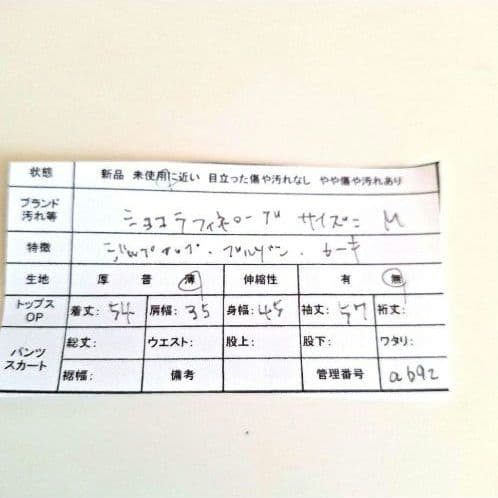 状態 新品 未使用に近い 目立った傷や汚れなし やや傷や汚れあり
ブランド
汚れ等 ショコラフィネローブ サイズ= M
特徴 ジップアップ・ブルゾン・カーキ
生地 厚 普 薄 伸縮性 有 無
トップス
OP 着丈: 54 肩幅: 35 身幅: 45 袖丈: 57 裄丈:
パンツ
スカート 総丈: ウエスト: 股上: 股下: ワタリ:
裾幅: 備考 管理番号 ab92